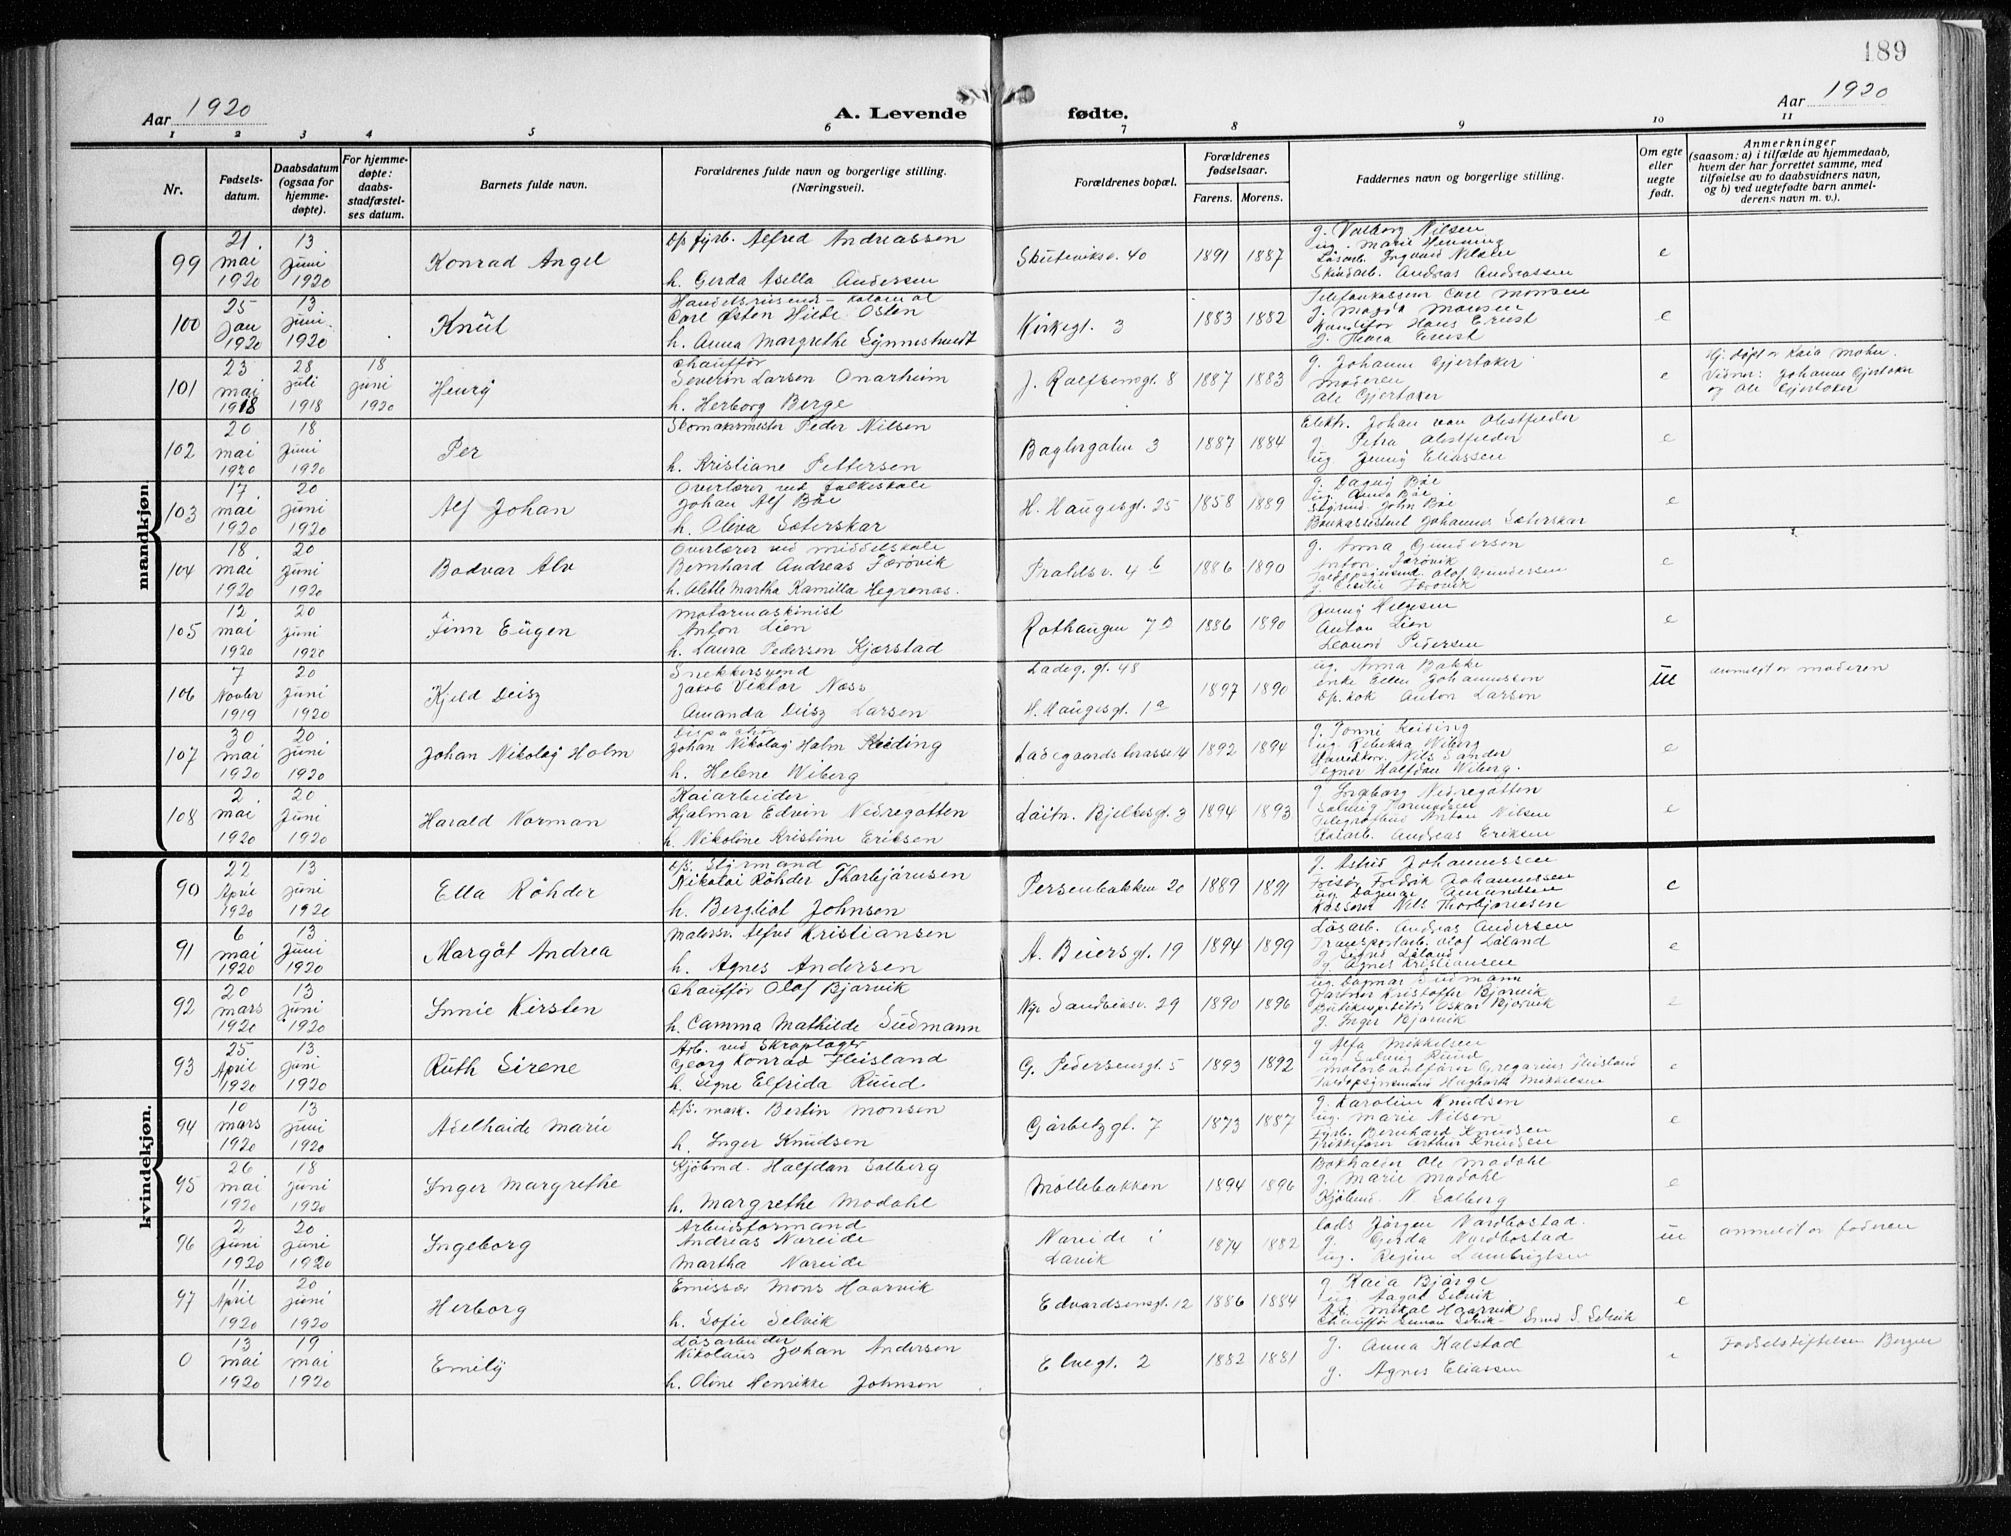 189
Aar 1920
A. Levende fødte.
Aar 1920
1 2 3 4 5 6 7 8 9 10 11
Nr.
Fødselsdatum.
Daabsdatum (ogsaa for hjemmedøpte).
For hjemmedøpte: daabsstadfæstelses datum.
Barnets fulde navn.
Forældrenes fulde navn og borgerlige stilling. (Næringsvei).
Forældrenes bopæl.
Forældrenes fødselsaar.
Farens. Morens.
Faddernes navn og borgerlige stilling.
Om egte eller uegte født.
Anmerkninger
(saasom: a) i tilfælde av hjemmedaab, hvem der har forrettet samme, med tilføielse av to daabsvidners navn, og b) ved uegtefødte barn anmelderens navn m. v.).
mandkjøn.
99
21. mai 1920
13 Juni 1920
Konrad Angel
D/s fyrb. Alfred Andreassen
h. Gerda Asella Andersen
Skuteviksv. 40
1891 1887
g. Valborg Nilsen
ug. Marie Henning
Løsarb. Ingvald Nilsen
Andreas Andreassen
e
100
25 Jan 1920
13 Juni 1920
Knut
Carl Østen Hilde Osten
h. Anna Margrethe Synnestvedt
Kirkegt. 3
1883 1882
Telefonkasserer Carl Monsen
Konditor Hans Ernst
g. Thea Ernst
e
101
23 mai 1918
28 juli 1918
18 juni 1920
Henry
Chauffør
Severin Larsen Onarheim
h. Herborg Berge
J. Rolfsensgt. 8
1887 1883
g. Johanne Gjertaker
Moderen
Ole Gjertaker
e
Hj. døpt av Kaia Mohn.
Vidner: Johanne Gjertaker
og Ole Gjertaker
102
20 mai 1920
18 Juni 1920
Per
Skomakermester Peder Nilsen
h. Kristiane Pettersen
Baglergaten 3
1887 1884
Elektr. Johan von Obstfelder
g. Petra Obstfelder
ug Jenny Eliassen
e
103
17 mai 1920
20 Juni 1920
Alf Johan
Overlærer ved folkeskole
Johan Alf Bøe
h. Oliva Sæterskar
H. Haugesgt. 25
1858 1889
g. Dagny Bøe
ug. Anna Bøe
John Bøe
Bankassistent Johannes Sæterskar
e
104
18 mai 1920
20 Juni 1920
Bodvar Alv
Overlærer ved middelskole
Bernhard Andreas Færøvik
h. Alette Martha Kamilla Hegrenæs.
Praldsv. 4 b
1886 1890
g. Anna Gundersen
Anton Færøvik
Olaf Gundersen
g. Cecilie Færøvik
e
105
12 mai 1920
20 Juni 1920
Finn Eugen
Motormaskinist
Anton Lien
h. Laura Pedersen Kjærstad
Rothaugen 7 B
1886 1890
Jenny Helgesen
Anton Lien
Leonard Pedersen
e
106
7 Novbr 1919
20 Juni 1920
Kjeld Deisz
Snekkersvend
Jakob Viktor Næss
Amanda Deisz Larsen
Ladeg. gt. 48
H. Haugesgt. 1a
1897 1890
ug. Anna Bakke
enke Ellen Johannessen
Dp. kok Anton Larsen
ue
anmeldt av moderen
107
30 mai 1920
20. juni 1920
Johan Nikolay Holm
Johan Nikolay Holm Keiding
h. Helene Wiberg
Ladegaards terrasse 4
1892 1894
g. Tonni Keiding
ug. Rebekka Wiberg
Nils Sander
Tegner Halfdan Wiberg.
e
108
2 mai 1920
20 Juni 1920
Harald Norman
Kaiarbeider
Hjalmar Edvin Nedregotten
h. Nikoline Kristine Eriksen
Løitn. Bjelkesgt. 3
1894 1893
g Ingeborg Nedregotten
Anton Nilsen
Kaiarb. Andreas Eriksen
e
kvindekjøn.
90
22 April 1920
13 juni 1920
Ella Röhder
D/s. Styrmand
Nikolai Röhder Thorbjørnsen
h. Bergliot Johnsen
Persenbakken 20
1889 1891
g. Astrid Johannessen
Frisør Fredrik Johannessen
ug Dagmar Amundsen
Kasserer Nils Thorbjørnsen
e
91
6 mai 1920
13 Juni 1920
Margot Andrea
Malersv. Alfred Kristiansen
h. Agnes Andersen
A. Beiersgt. 19
1894 1899
Løsarb. Andreas Andersen
Transportarb. Olaf Løland
g Løland
g. Agnes Kristiansen
e
92
20 mars 1920
13 juni 1920
Innie Kirsten
Chauffør Olaf Bjarvik
h. Camma Mathilde Sudmann
Nye Sandviksv. 29
1890 1896
ug Dagmar Sudmann
Gartner Kristoffer Bjarvik
Oskar Bjarvik
g. Inger Bjarvik
e
93
25 April 1920
13 Juni 1920
Ruth Sirene
Arb. ved Skraplager
Georg Konrad Fleisland
h. Signe Elfrida Ruud.
G. Pedersensgt. 5
1893 1892
g Alfa Mikkelsen
ug. Solveig Ruud
Gregarius Fleisland
Hagbarth Mikkelsen
e
94
10 mars 1920
13 Juni 1920
Adelhaide Marie
D/s. mask. Bertin Monsen
h. Inger Knudsen
Görbitzgt. 7
1873 1887
g. Karoline Knudsen
ug. Marie Nilsen
Fyrb. Bernhard Knudsen
Arthur Knudsen
e
95
26 mai 1920
18 juni 1920
Inger Margrethe
Kjøbmd. Halfdan Solberg
h. Margrethe Modahl
Møllebakken
1894 1896
Bokholder Ole Modahl
g. Marie Modahl
Kjøbmd. N. Solberg
e
96
2 Juni 1920
20 Juni 1920
Ingeborg
Arbeidsformand
Andreas Nareide
Martha Nareide
Nareide i Lavik
1874 1882
Lods Jörgen Nordbostad.
g. Gerda Nordbostad
ug. Regine Lambrigtsen
ue
anmeldt av faderen
97
11 April 1920
20 juni 1920
Herborg
Emissær Mons Haarvik
h. Sofie Selvik
Edvardsensgt. 12
1886 1884
g Kaia Bjørge
ug Aagot Selvik
Mikal Haarvik
Chauffør Simon Selvik - Smed S. Selvik
e
0
13 mai 1920
19 mai 1920
Emily
Løsarbeider
Nikolaus Johan Andersen
h. Oline Henrikke Johnsen
Elvegt. 2
1882 1881
g. Anna Kalstad
g. Agnes Eliassen
e
Fødselstiftelsen Bergen